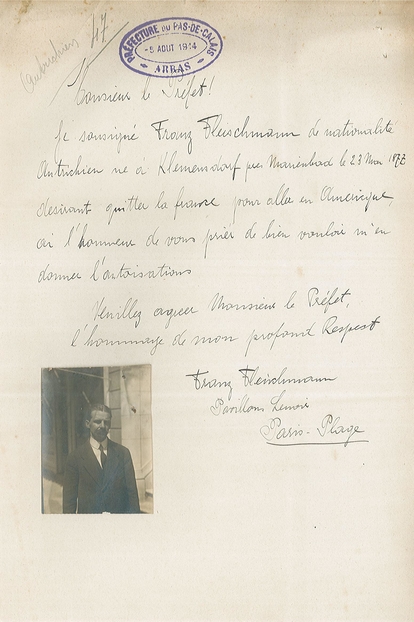 47
Autrichien
PRÉFECTURE DU PAS-DE-CALAIS
-5 AOUT 1914
ARRAS
Monsieur le Préfet!
Je soussigné Franz Fleischmann de nationalité
Autrichien né à Klemensdorf près Marienbad le 23 Mai
desirant quitter la france pour alle en Americque,
ai l'honneur de vous prier de bien vouloir m'en
donner l'autoisations
Veuillez agreer Monsieur le Préfet,
l'hommage de mon profond Respest
Franz Fleischmann
Pavillons Lenoir
Paris-Plage